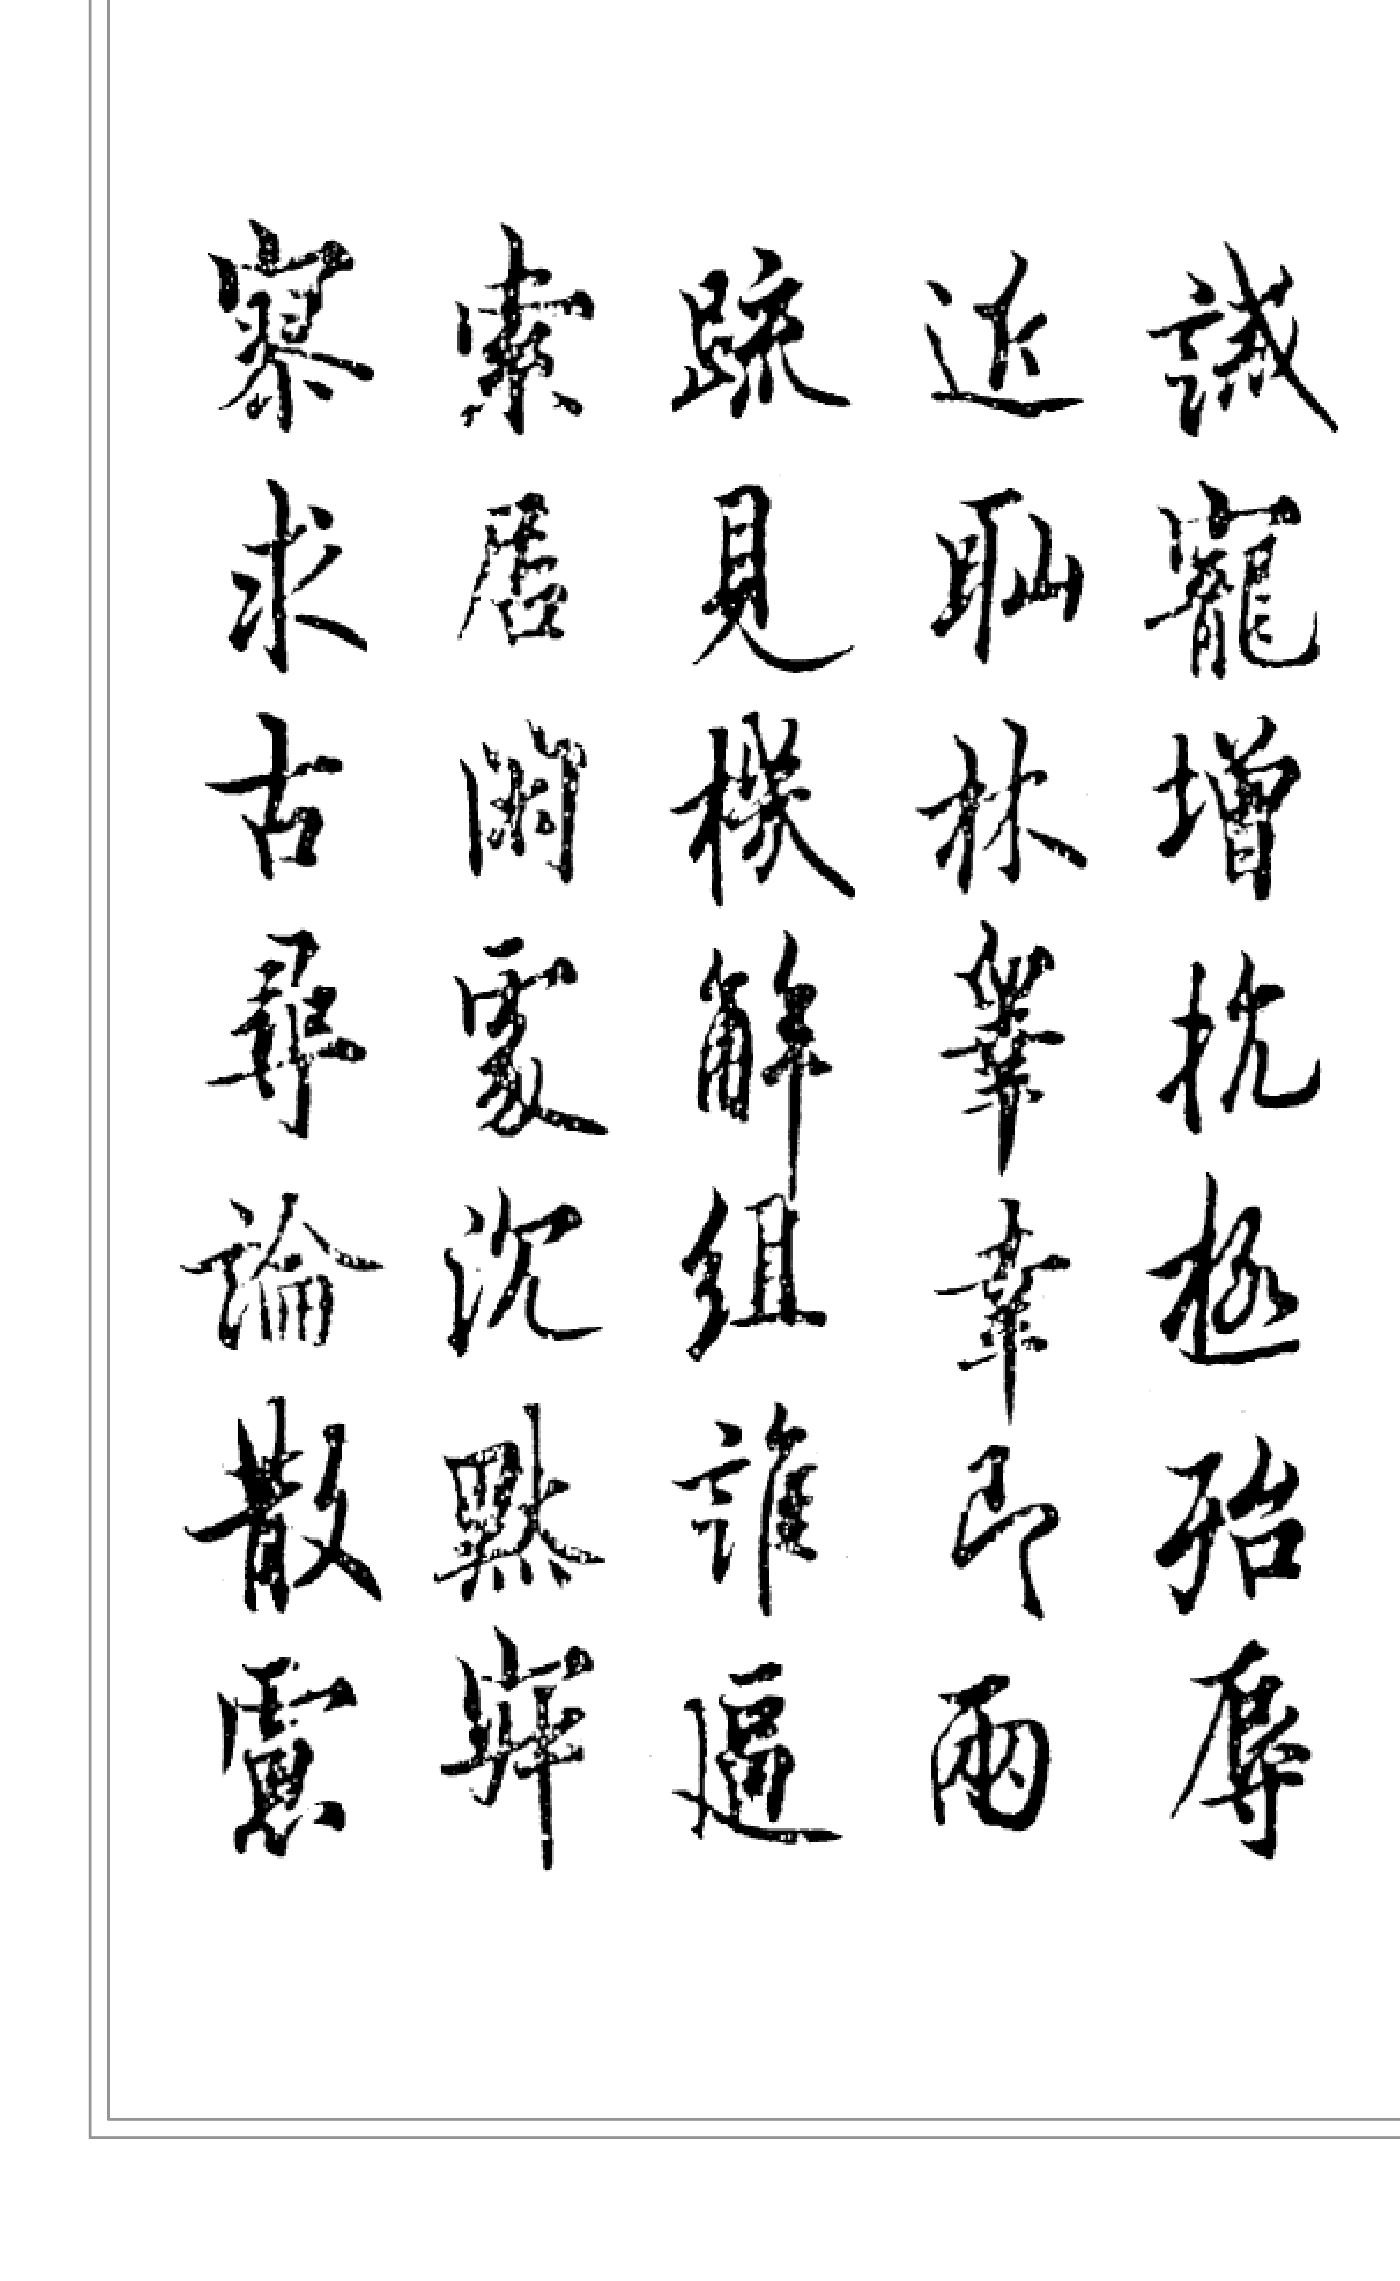 誡寵增抗極殆辱
近恥林睾幸即兩
疏見機解組誰逼
索居閑處沉默寂
寥求古尋論散慮